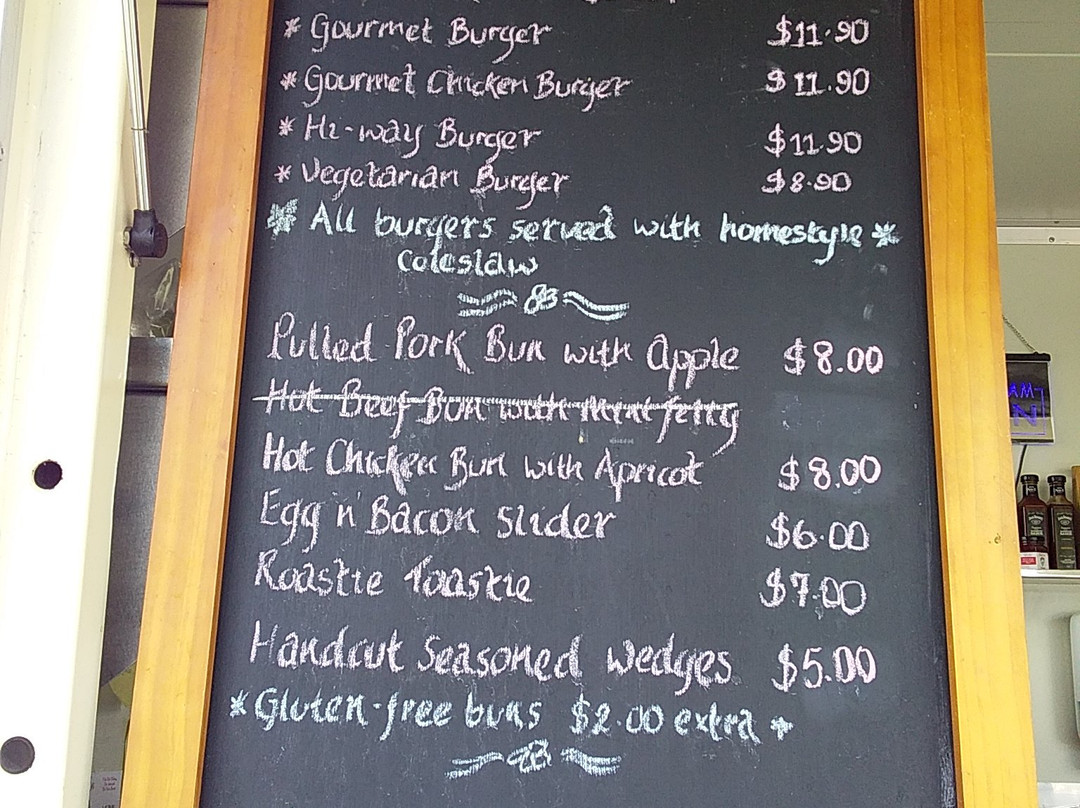 * Gourmet Burger $11.90
* Gourmet Chicken Burger $11.90
* Hi-way Burger $11.90
* Vegetarian Burger $8.90
* All burgers served with homestyle *
Coleslaw
Pulled Pork Bun with Apple $8.00
Hot Beef Bun with Mint jelly
Hot Chicken Bun with Apricot $8.00
Egg 'n' Bacon Slider $6.00
Roastie Toastie $7.00
Handcut Seasoned Wedges $5.00
* Gluten-free buns $2.00 extra *